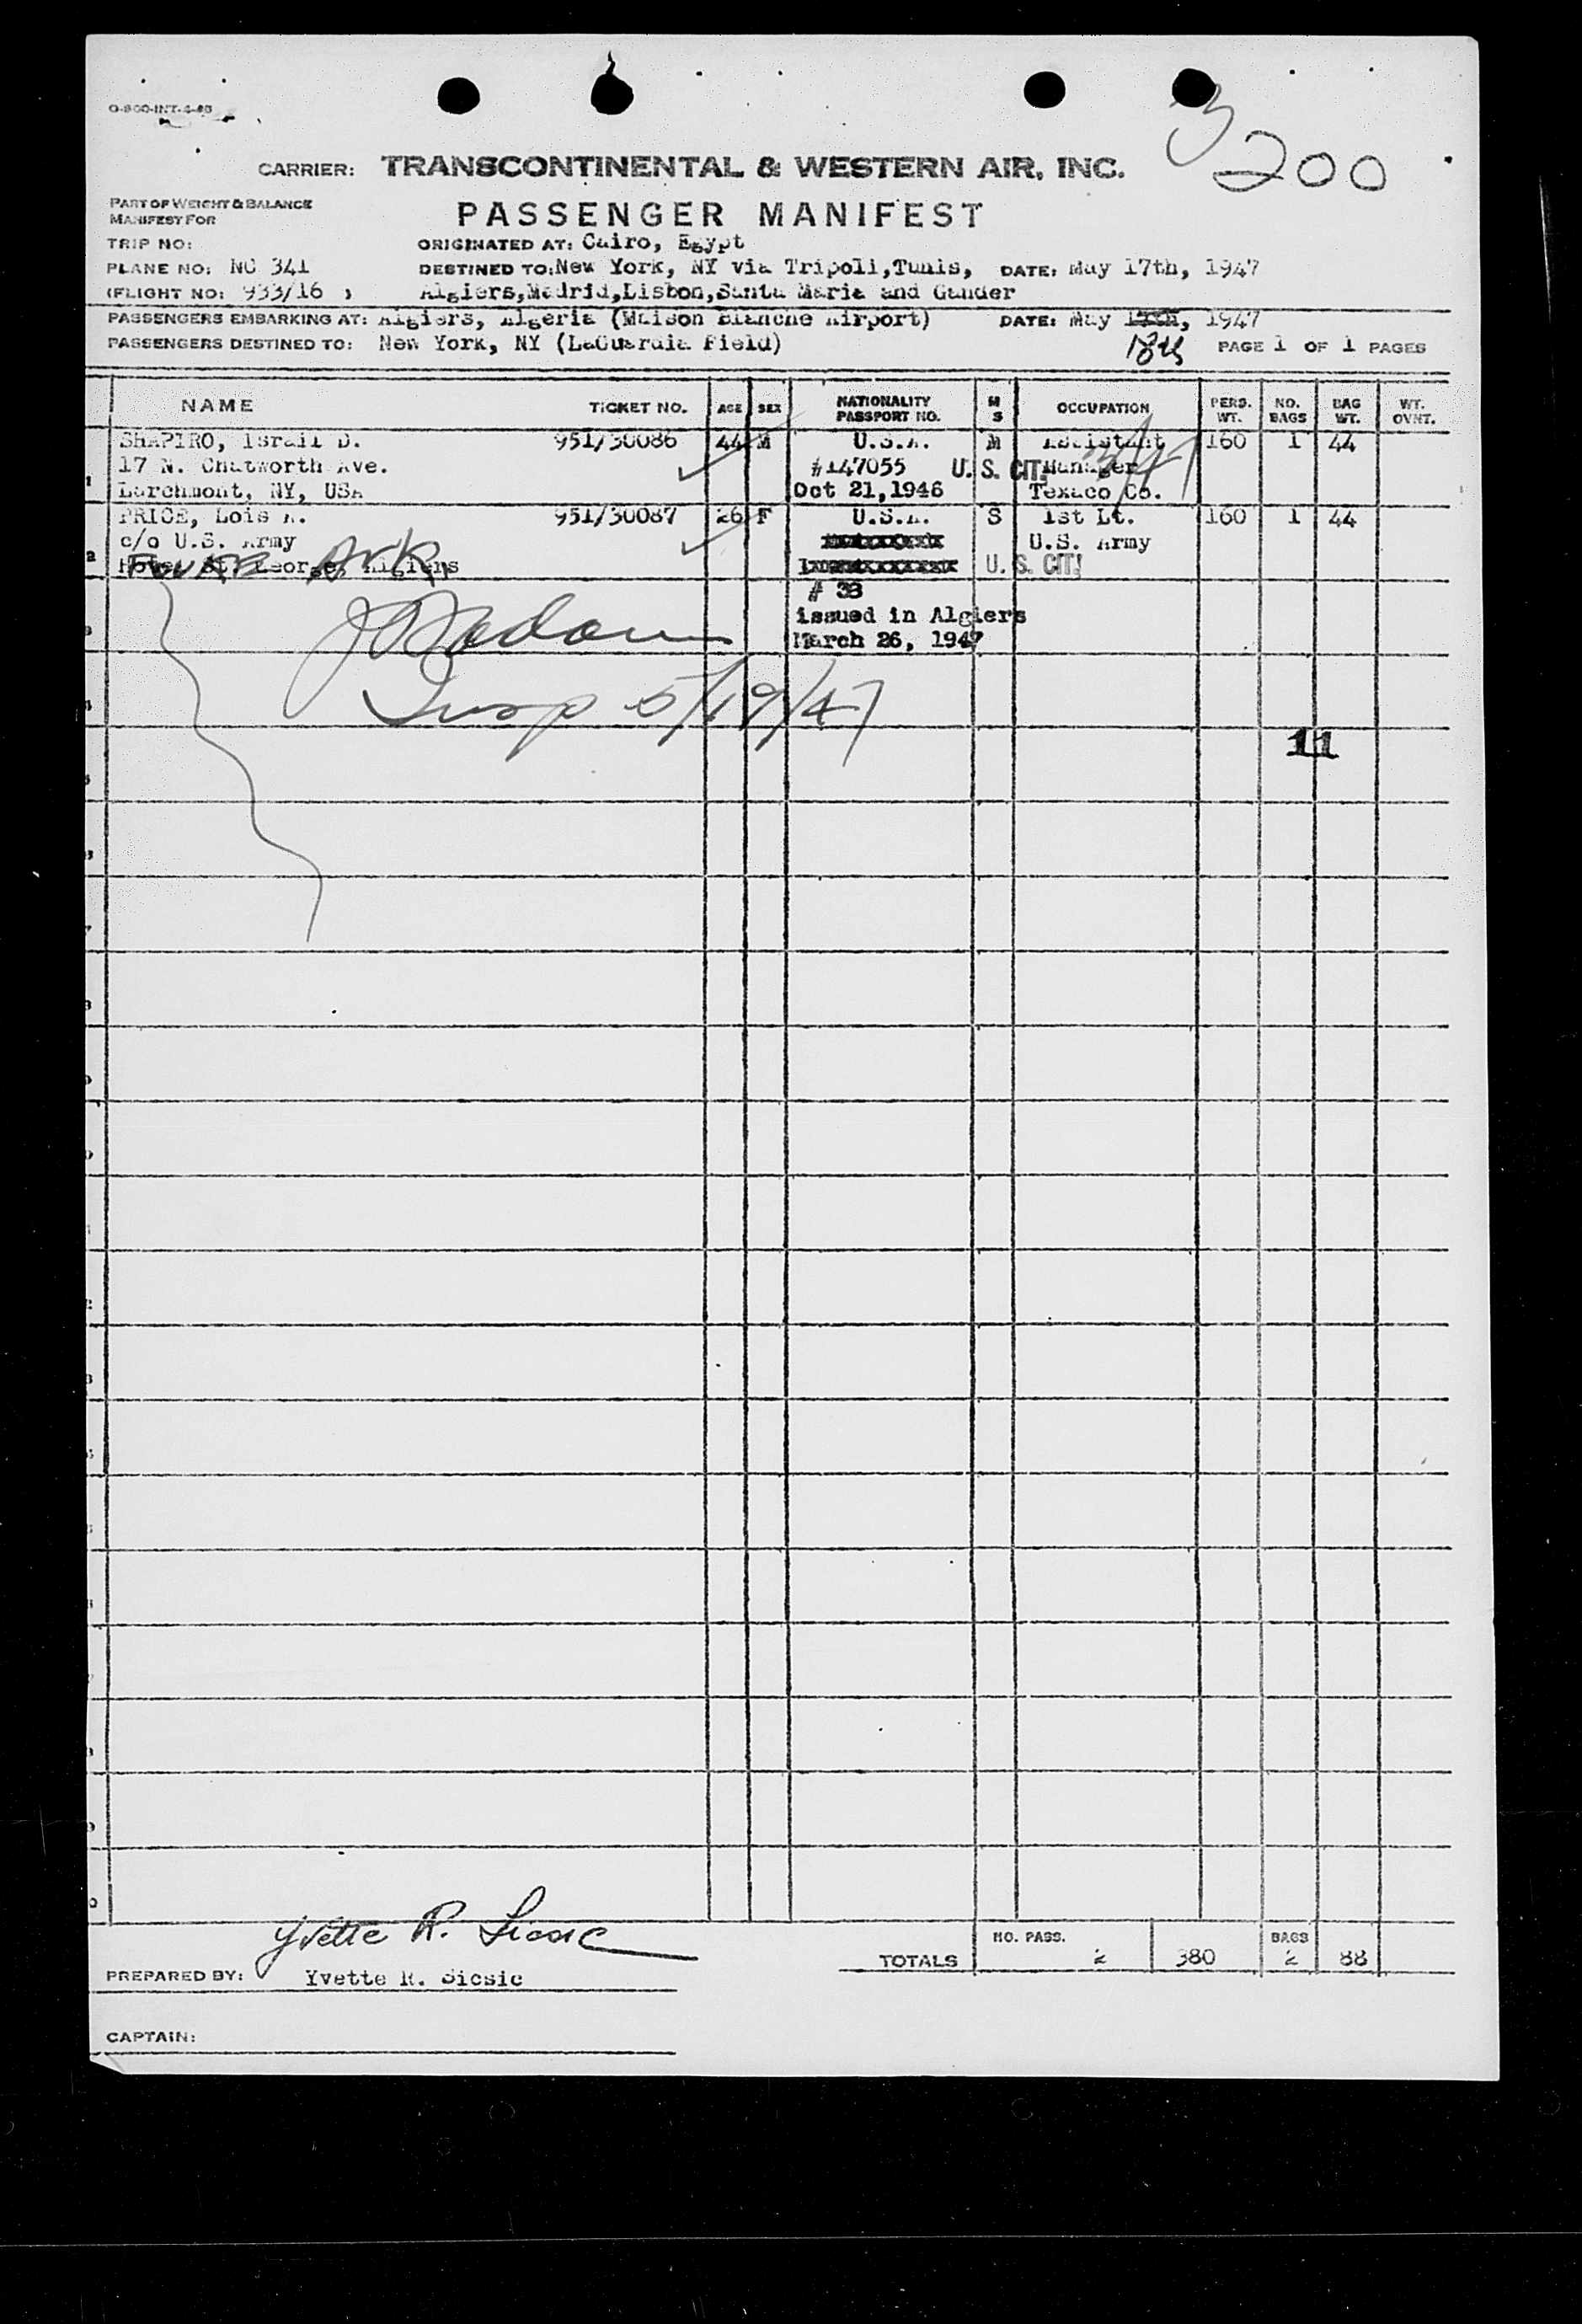 O-800-INT-4-46
3
200
CARRIER: TRANSCONTINENTAL & WESTERN AIR, INC.
PART OF WEIGHT & BALANCE
MANIFEST FOR
PASSENGER MANIFEST
TRIP NO: ORIGINATED AT: Cairo, Egypt
PLANE NO: NC 341 DESTINED TO: New York, NY via Tripoli,Tunis, DATE: May 17th, 1947
(FLIGHT NO: 933/16 ) Algiers,Madrid,Lisbon,Santa Maria and Gander
PASSENGERS EMBARKING AT: Algiers, Algeria (Maison Blanche Airport) DATE: May 17th, 1947
18th
PASSENGERS DESTINED TO: New York, NY (LaGuardia Field) PAGE 1 OF 1 PAGES
NAME TICKET NO. AGE SEX NATIONALITY PASSPORT NO. M S OCCUPATION PERS. WT. NO. BAGS BAG WT. WT. OVNT.
SHAPIRO, Israil D. 951/30086 44 M U.S.A. M Assistant 160 1 44
17 N. Chatworth Ave. #147055 U. S. CIT. Manager
1 Larchmont, NY, USA Oct 21,1946 Texaco Co.
PRICE, Lois A. 951/30087 26 F U.S.A. S 1st Lt. 160 1 44
c/o U.S. Army U.S. Army
2 Hotel St. George, Algiers U. S. CIT.
Ark
# 38
issued in Algiers
March 26, 1947
Insp 5/19/47
11
Yvette R. Sicsic
PREPARED BY: Yvette R. Sicsic
TOTALS NO. PASS. 2 380 BAGS 2 88
CAPTAIN: